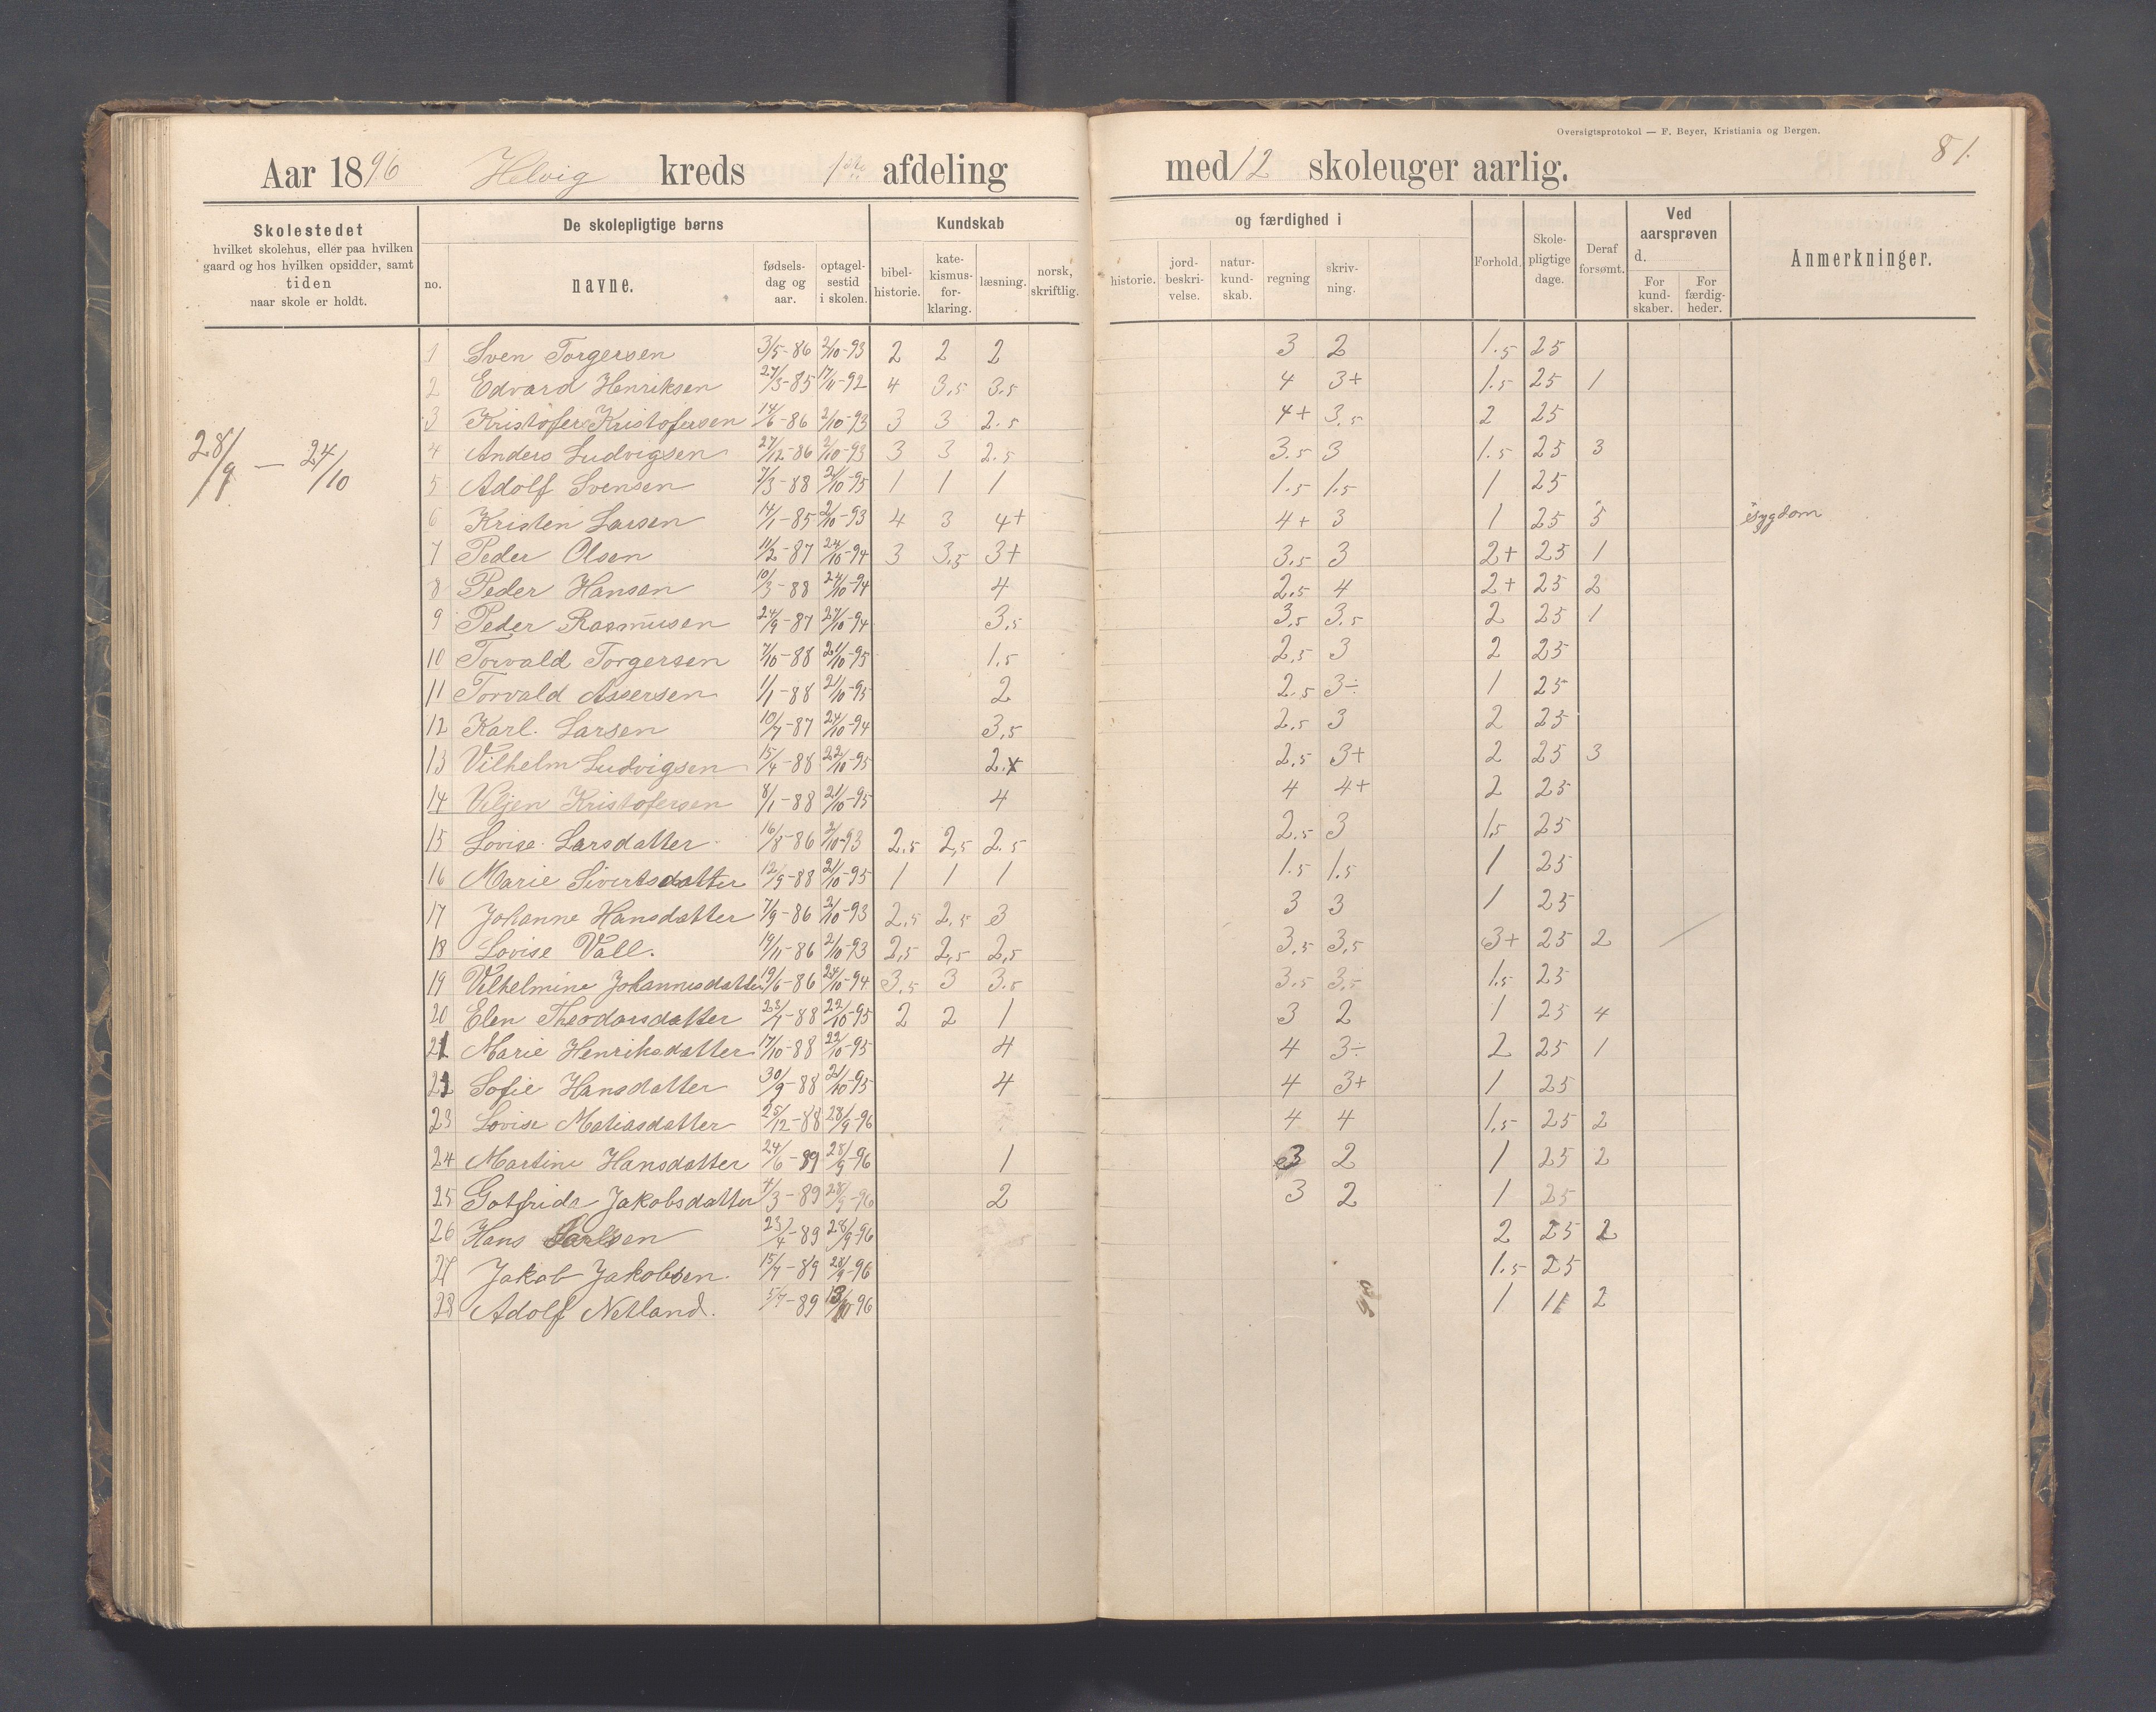 Oversigtsprotokol — F. Beyer, Kristiania og Bergen.
81.
Aar 1896 Helvig kreds 1ste afdeling med 12 skoleuger aarlig.
Skolestedet hvilket skolehus, eller paa hvilken gaard og hos hvilken opsidder, samt tiden naar skole er holdt.
De skolepligtige børns
no. navne. fødsels- dag og aar. optagel- sestid i skolen.
Kundskab og færdighed i
bibel- historie. kate- kismus- for- klaring. læsning. norsk, skriftlig. historie. jord- beskri- velse. natur- kund- skab. regning skriv- ning.
Forhold. Skole- pligtige dage. Deraf forsømt.
Ved aarsprøven d. For kund- skaber. For færdig- heder.
Anmerkninger.
28/9 — 24/10
1 Sven Torgersen 3/5-86 2/10-93 2 2 2 3 2 1.5 25
2 Edvard Henriksen 27/3-85 17/11-92 4 3,5 3.5 4 3+ 1.5 25 1
3 Kristofer Kristofersen 14/6-86 2/10-93 3 3 2.5 4+ 3.5 2 25
4 Anders Ludvigsen 27/12-86 2/10-93 3 3 2.5 3.5 3 1.5 25 3
5 Adolf Svensen 7/3-88 21/10-95 1 1 1 1.5 1.5 1 25
6 Kristen Larsen 14/1-85 2/10-93 4 3 4+ 4+ 3 1 25 5 sygdom
7 Peder Olsen 11/2-87 24/10-94 3 3,5 3+ 3.5 3 2+ 25 1
8 Peder Hansen 10/3-88 24/10-94 4 2.5 4 2+ 25 2
9 Peder Rasmusen 24/9-87 24/10-94 3.5 3.5 3.5 2 25 1
10 Torvald Torgersen 7/10-88 21/10-95 1.5 2,5 3 2 25
11 Torvald Assersen 1/1-88 21/10-95 2 2.5 3÷ 1 25
12 Karl. Larsen 10/7-87 24/10-94 3,5 2.5 3 2 25
13 Vilhelm Ludvigsen 15/4-88 22/10-95 2. 2,5 3+ 2 25 3
14 Viljen Kristofersen 8/1-88 21/10-95 4 4 4+ 2 25
15 Lovise Larsdatter 16/8-86 2/10-93 2.5 2,5 2.5 2.5 3 1,5 25
16 Marie Sivertsdatter 12/9-88 21/10-95 1 1 1 1.5 1.5 1 25
17 Johanne Hansdatter 7/9-86 2/10-93 2,5 2,5 3 3 3 1 25
18 Lovise Vall. 19/11-86 2/10-93 2,5 2,5 2,5 3,5 3,5 3+ 25 2
19 Vilhelmine Johannesdatter 19/6-86 24/10-94 3.5 3 3.5 3.5 3,5 1.5 25
20 Elen Theodorsdatter 23/7-88 22/10-95 2 2 1 3 2 1 25 4
21 Marie Henriksdatter 17/10-88 22/10-95 4 4 3÷ 2 25 1
22 Sofie Hansdatter 30/9-88 21/10-95 4 4 3+ 1 25
23 Lovise Matiasdatter 25/12-88 28/9-96 4 4 1,5 25 2
24 Martine Hansdatter 24/6-89 28/9-96 1 3 2 1 25 2
25 Gotfrida Jakobsdatter 4/3-89 28/9-96 2 3 2 1 25
26 Hans Karlsen 23/4-89 28/9-96 2 25 2
27 Jakob Jakobsen. 15/7-89 28/9-96 1.5 25
28 Adolf Netland. 5/7-89 13/10-96 1 11 2